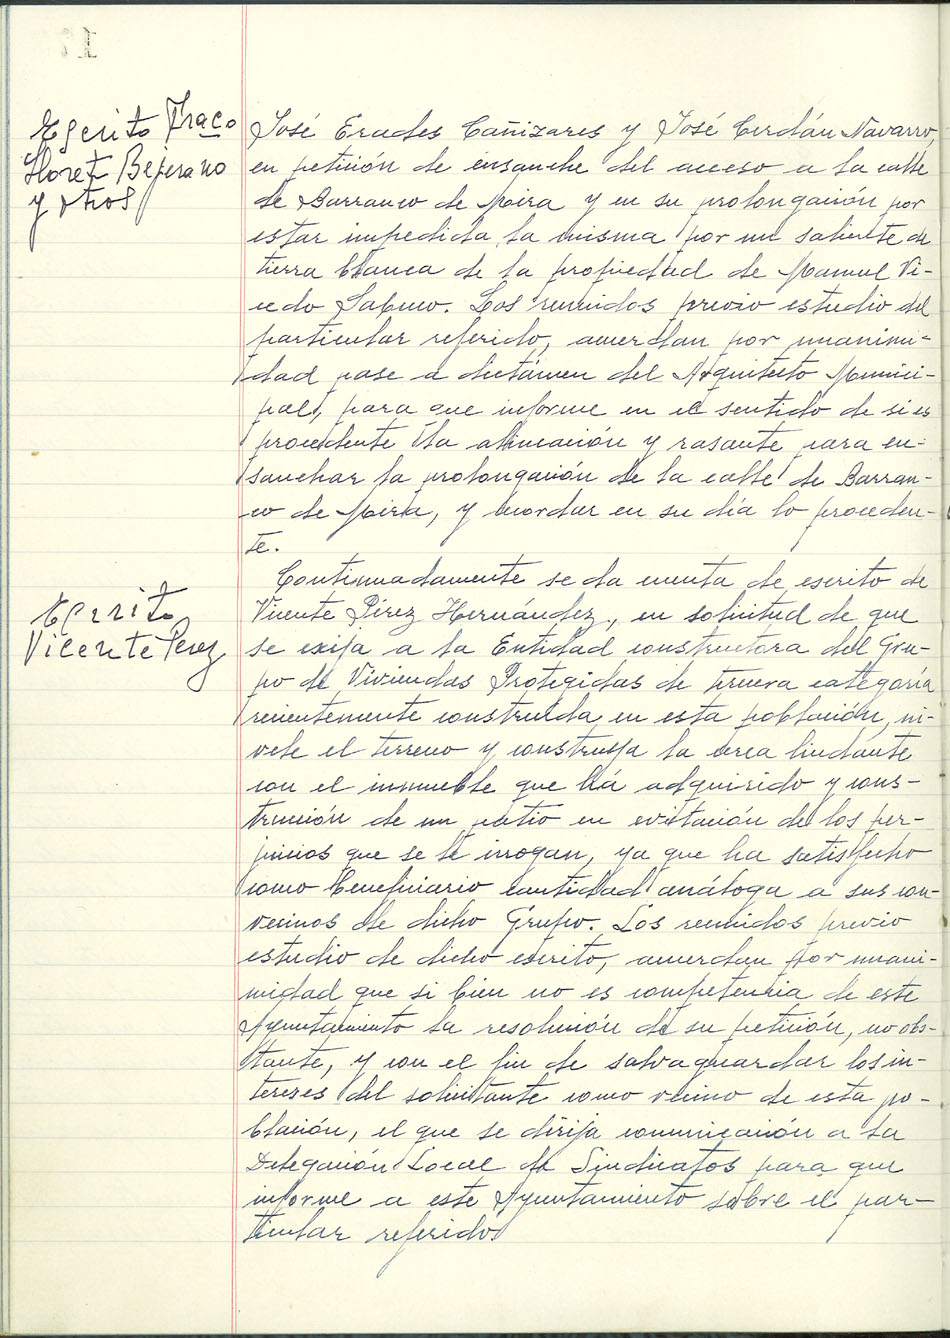 Escrito Fraco
Lloret Bejerano
y otros
José Erades Cañizares y José Cerdán Navarro,
en petición de ensanche del acceso a la calle
de Barranco de Mira y en su prolongación por
estar impedida la misma por un saliente de
tierra blanca de la propiedad de Manuel Vi-
cedo Sabuco. Los reunidos previo estudio del
particular referido, acuerdan por unanimi-
dad pase a dictámen del Arquitecto Munici-
pal, para que informe en el sentido de si es
procedente la alineación y rasante para en-
sanchar la prolongación de la calle de Barran-
co de Mira, y acordar en su día lo proceden-
te.
Escrito
Vicente Perez
Continuadamente se da cuenta de escrito de
Vicente Pérez Hernández, en solicitud de que
se exija a la Entidad constructora del Gru-
po de Viviendas Protegidas de tercera categoría
recientemente construida en esta población, ni-
vele el terreno y construya la acera lindante
con el inmueble que há adquirido y cons-
trucción de un patio en evitación de los per-
juicios que se le irrogan, ya que ha satisfecho
como beneficiario cantidad análoga a sus con-
vecinos de dicho Grupo. Los reunidos previo
estudio de dicho escrito, acuerdan por unani-
midad que si bien no es competencia de este
Ayuntamiento la resolución de su petición, no obs-
tante, y con el fin de salvaguardar los in-
tereses del solicitante como vecino de esta po-
blación, el que se dirija comunicación a la
Delegación Local de Sindicatos para que
informe a este Ayuntamiento sobre el par-
ticular referido